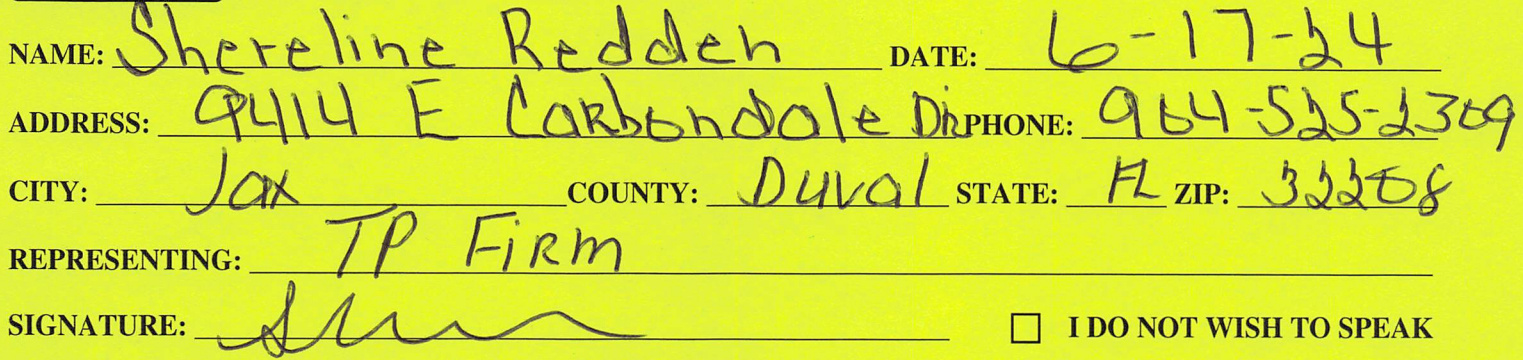 NAME: Shereline Redden DATE: 6-17-24
ADDRESS: 9414 E Carbondale Dr PHONE: 904-525-2309
CITY: Jax COUNTY: Duval STATE: FL ZIP: 32208
REPRESENTING: TP FiRm
SIGNATURE: ☐ I DO NOT WISH TO SPEAK